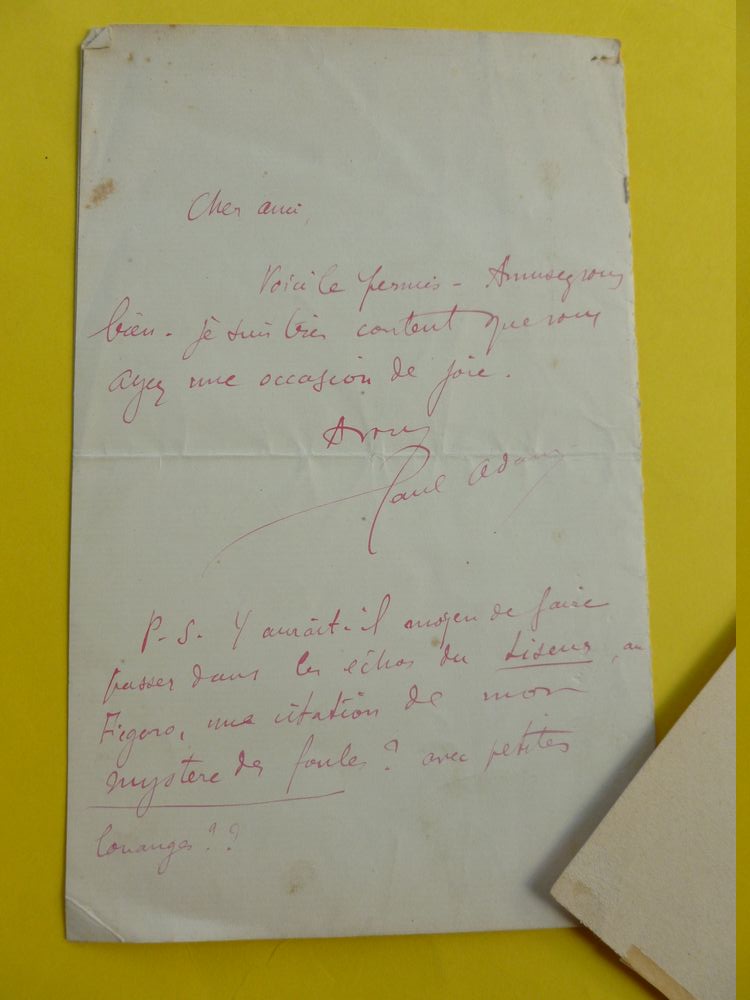 Cher ami,
Voici le permis - Amusez vous
bien. je suis très content que vous
ayez une occasion de joie.
A vous
Paul Adam
P-S. Y aurait-il moyen de faire
passer dans les échos du Liseur, au
Figaro, une citation de mon
mystère des foules ? avec petites
louanges ??